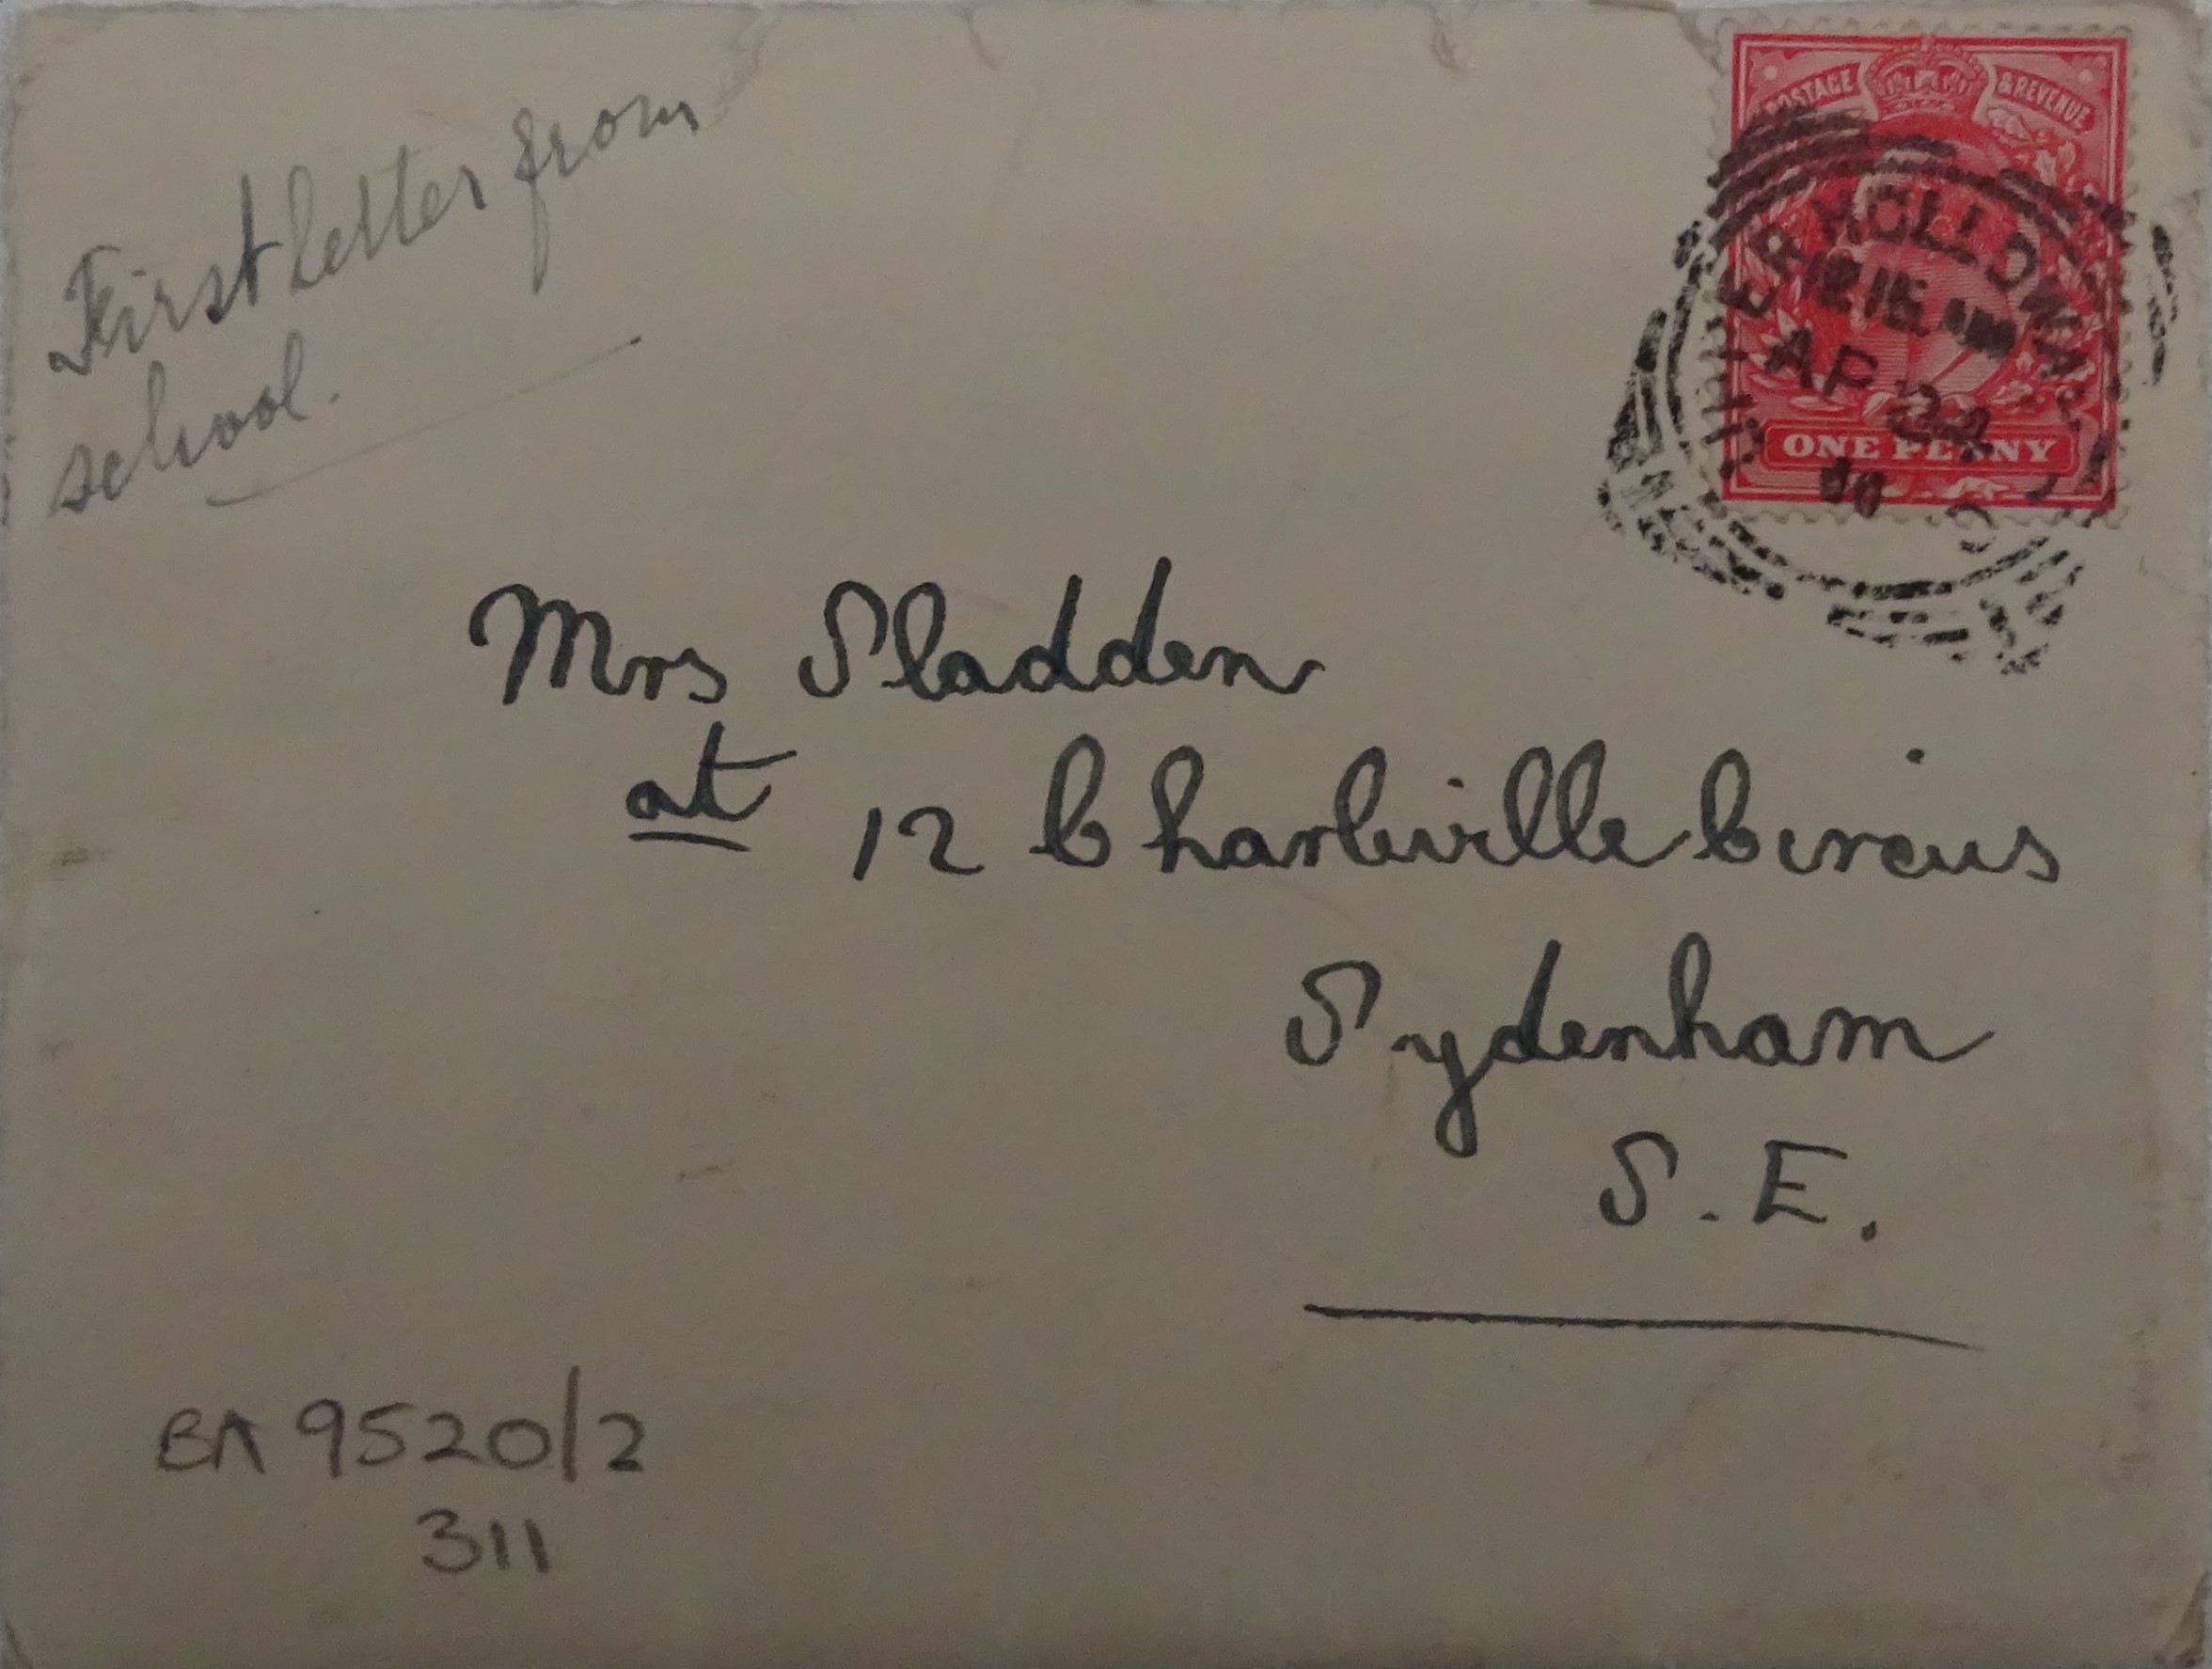 First letter from
school.
POSTAGE & REVENUE
UPPER HOLLOWAY
12 15
AP 24
ONE PENNY
Mrs Sladden
at 12 Charleville Circus
Sydenham
S. E.
BA 9520/2
311